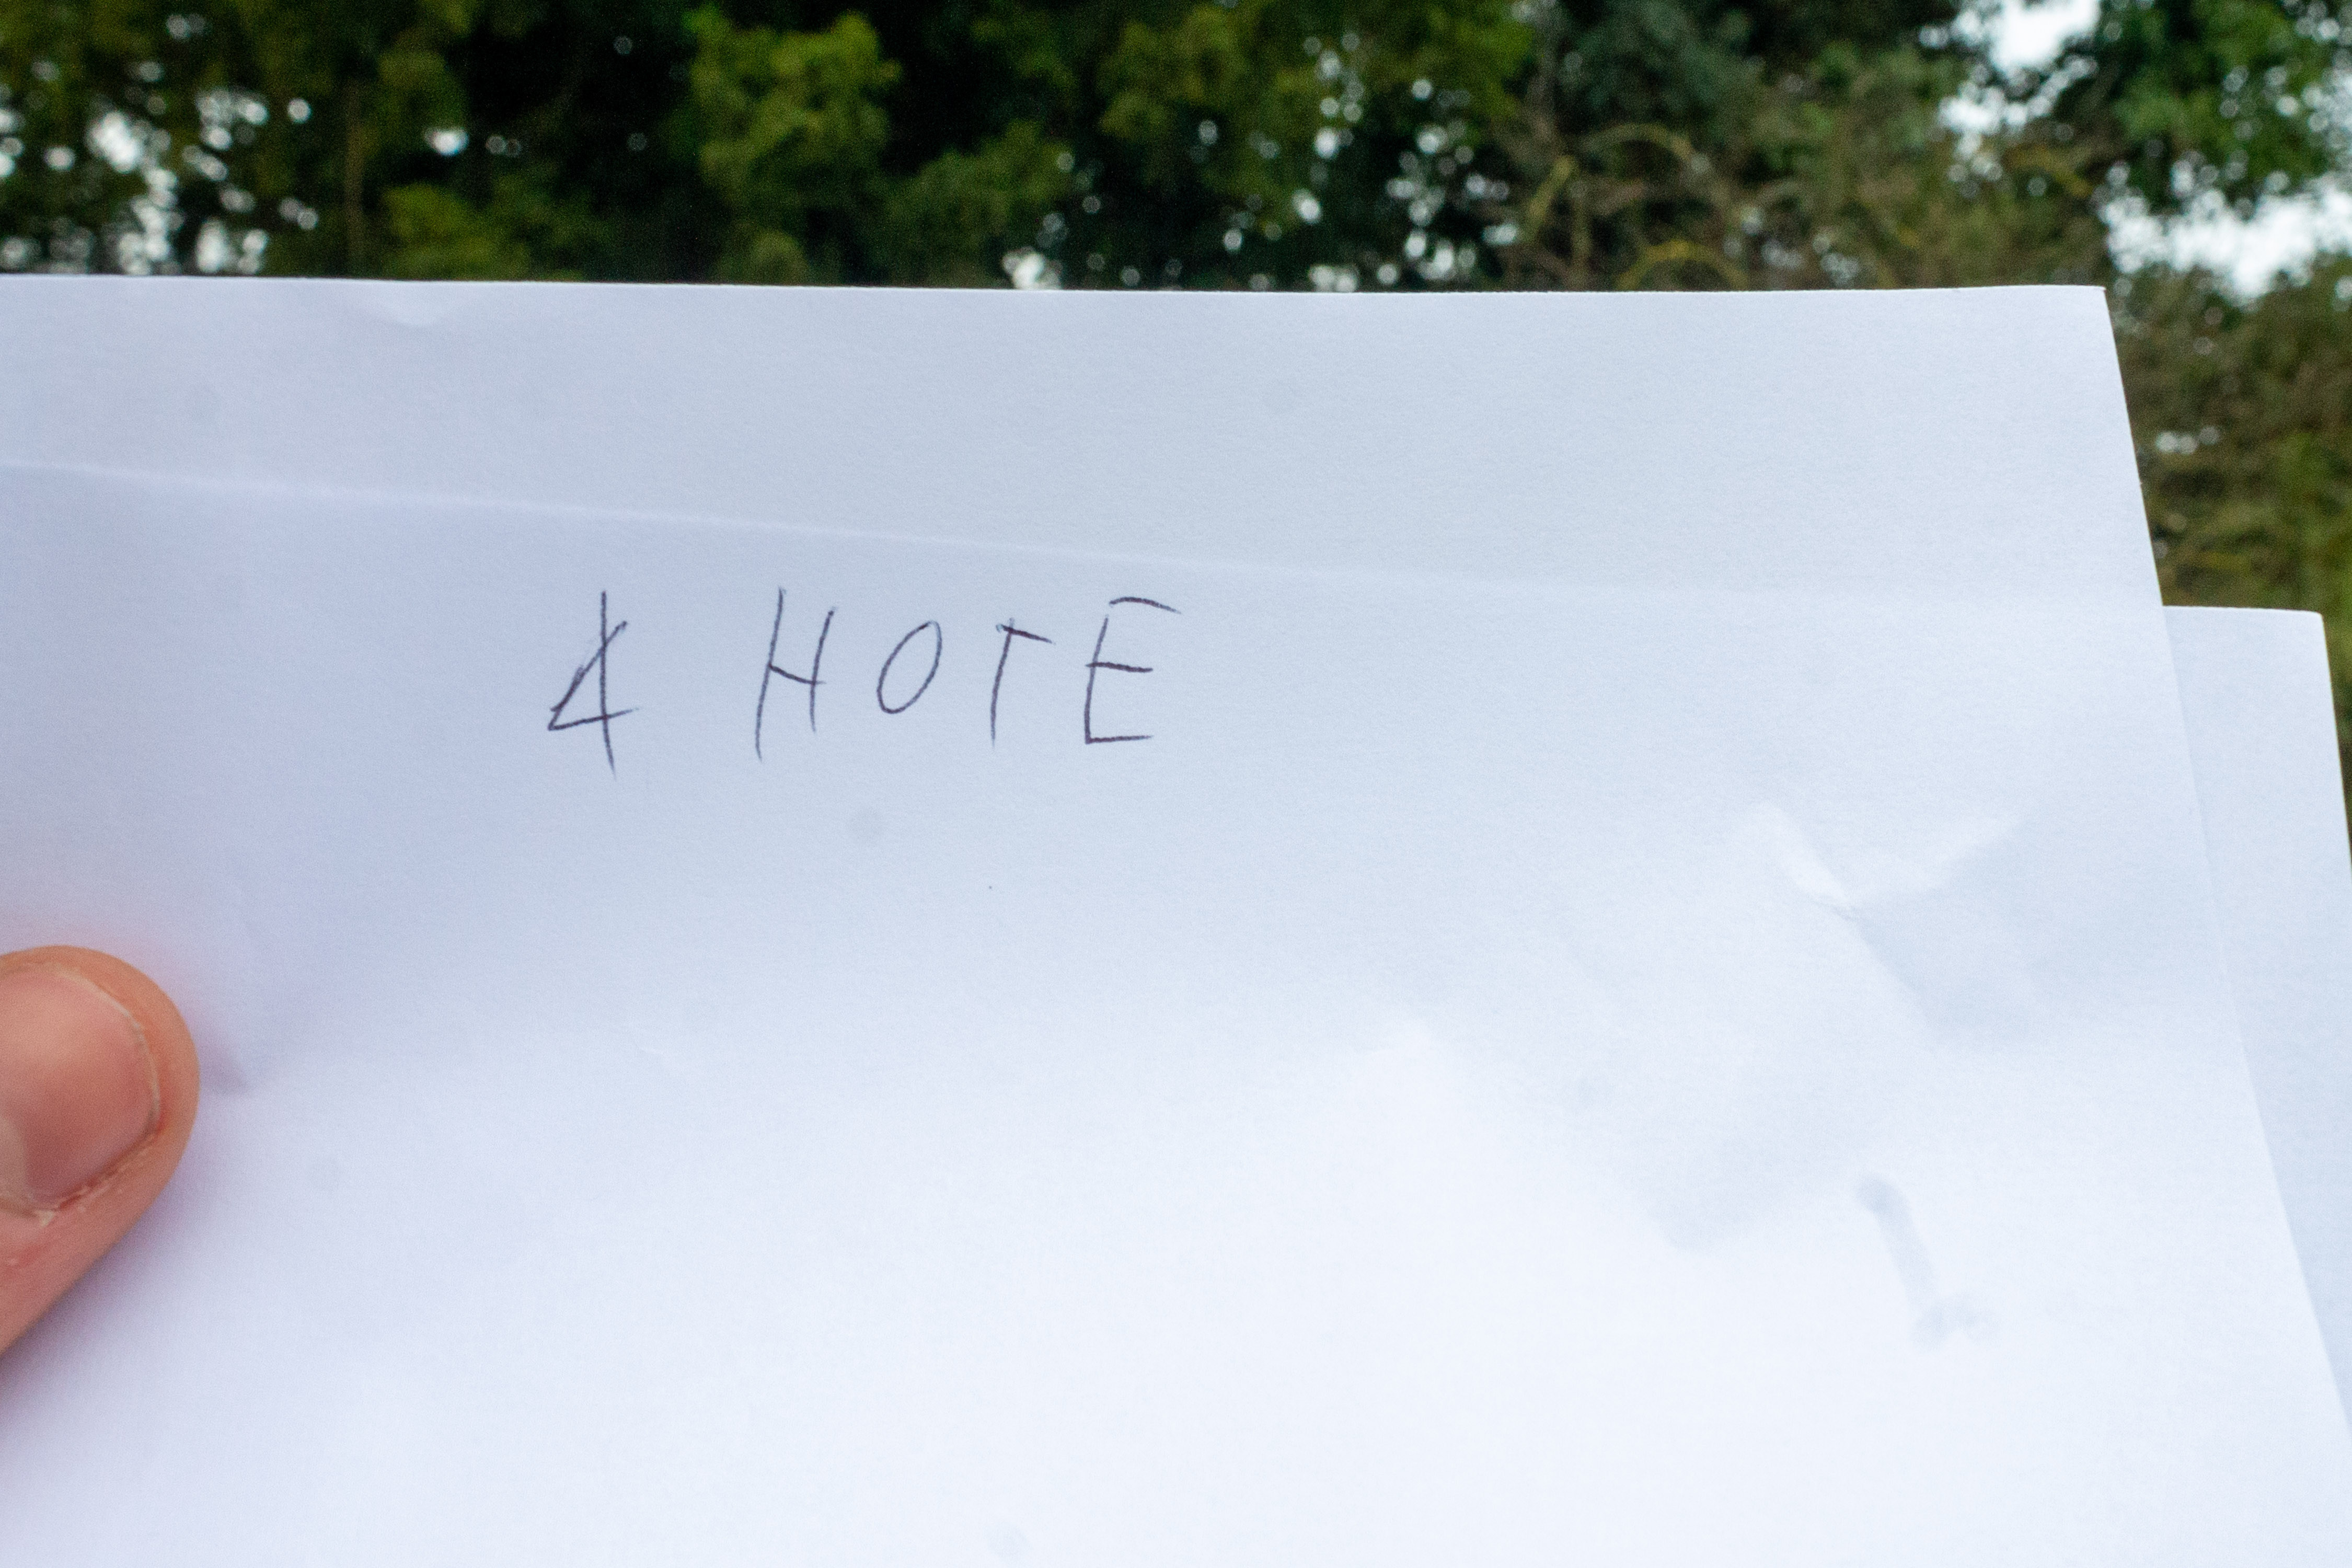 4 HOTE